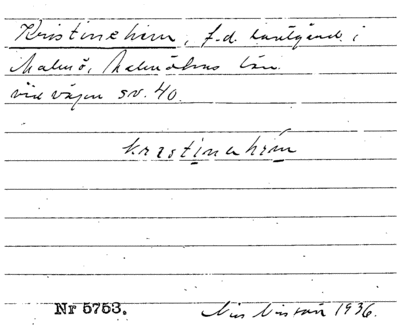 Kristinehem, f.d. lantgård i
Malmö, Malmöhus län
vid vägen sv. 40.
Kristinehem
Nr 5753. Nils 1936.